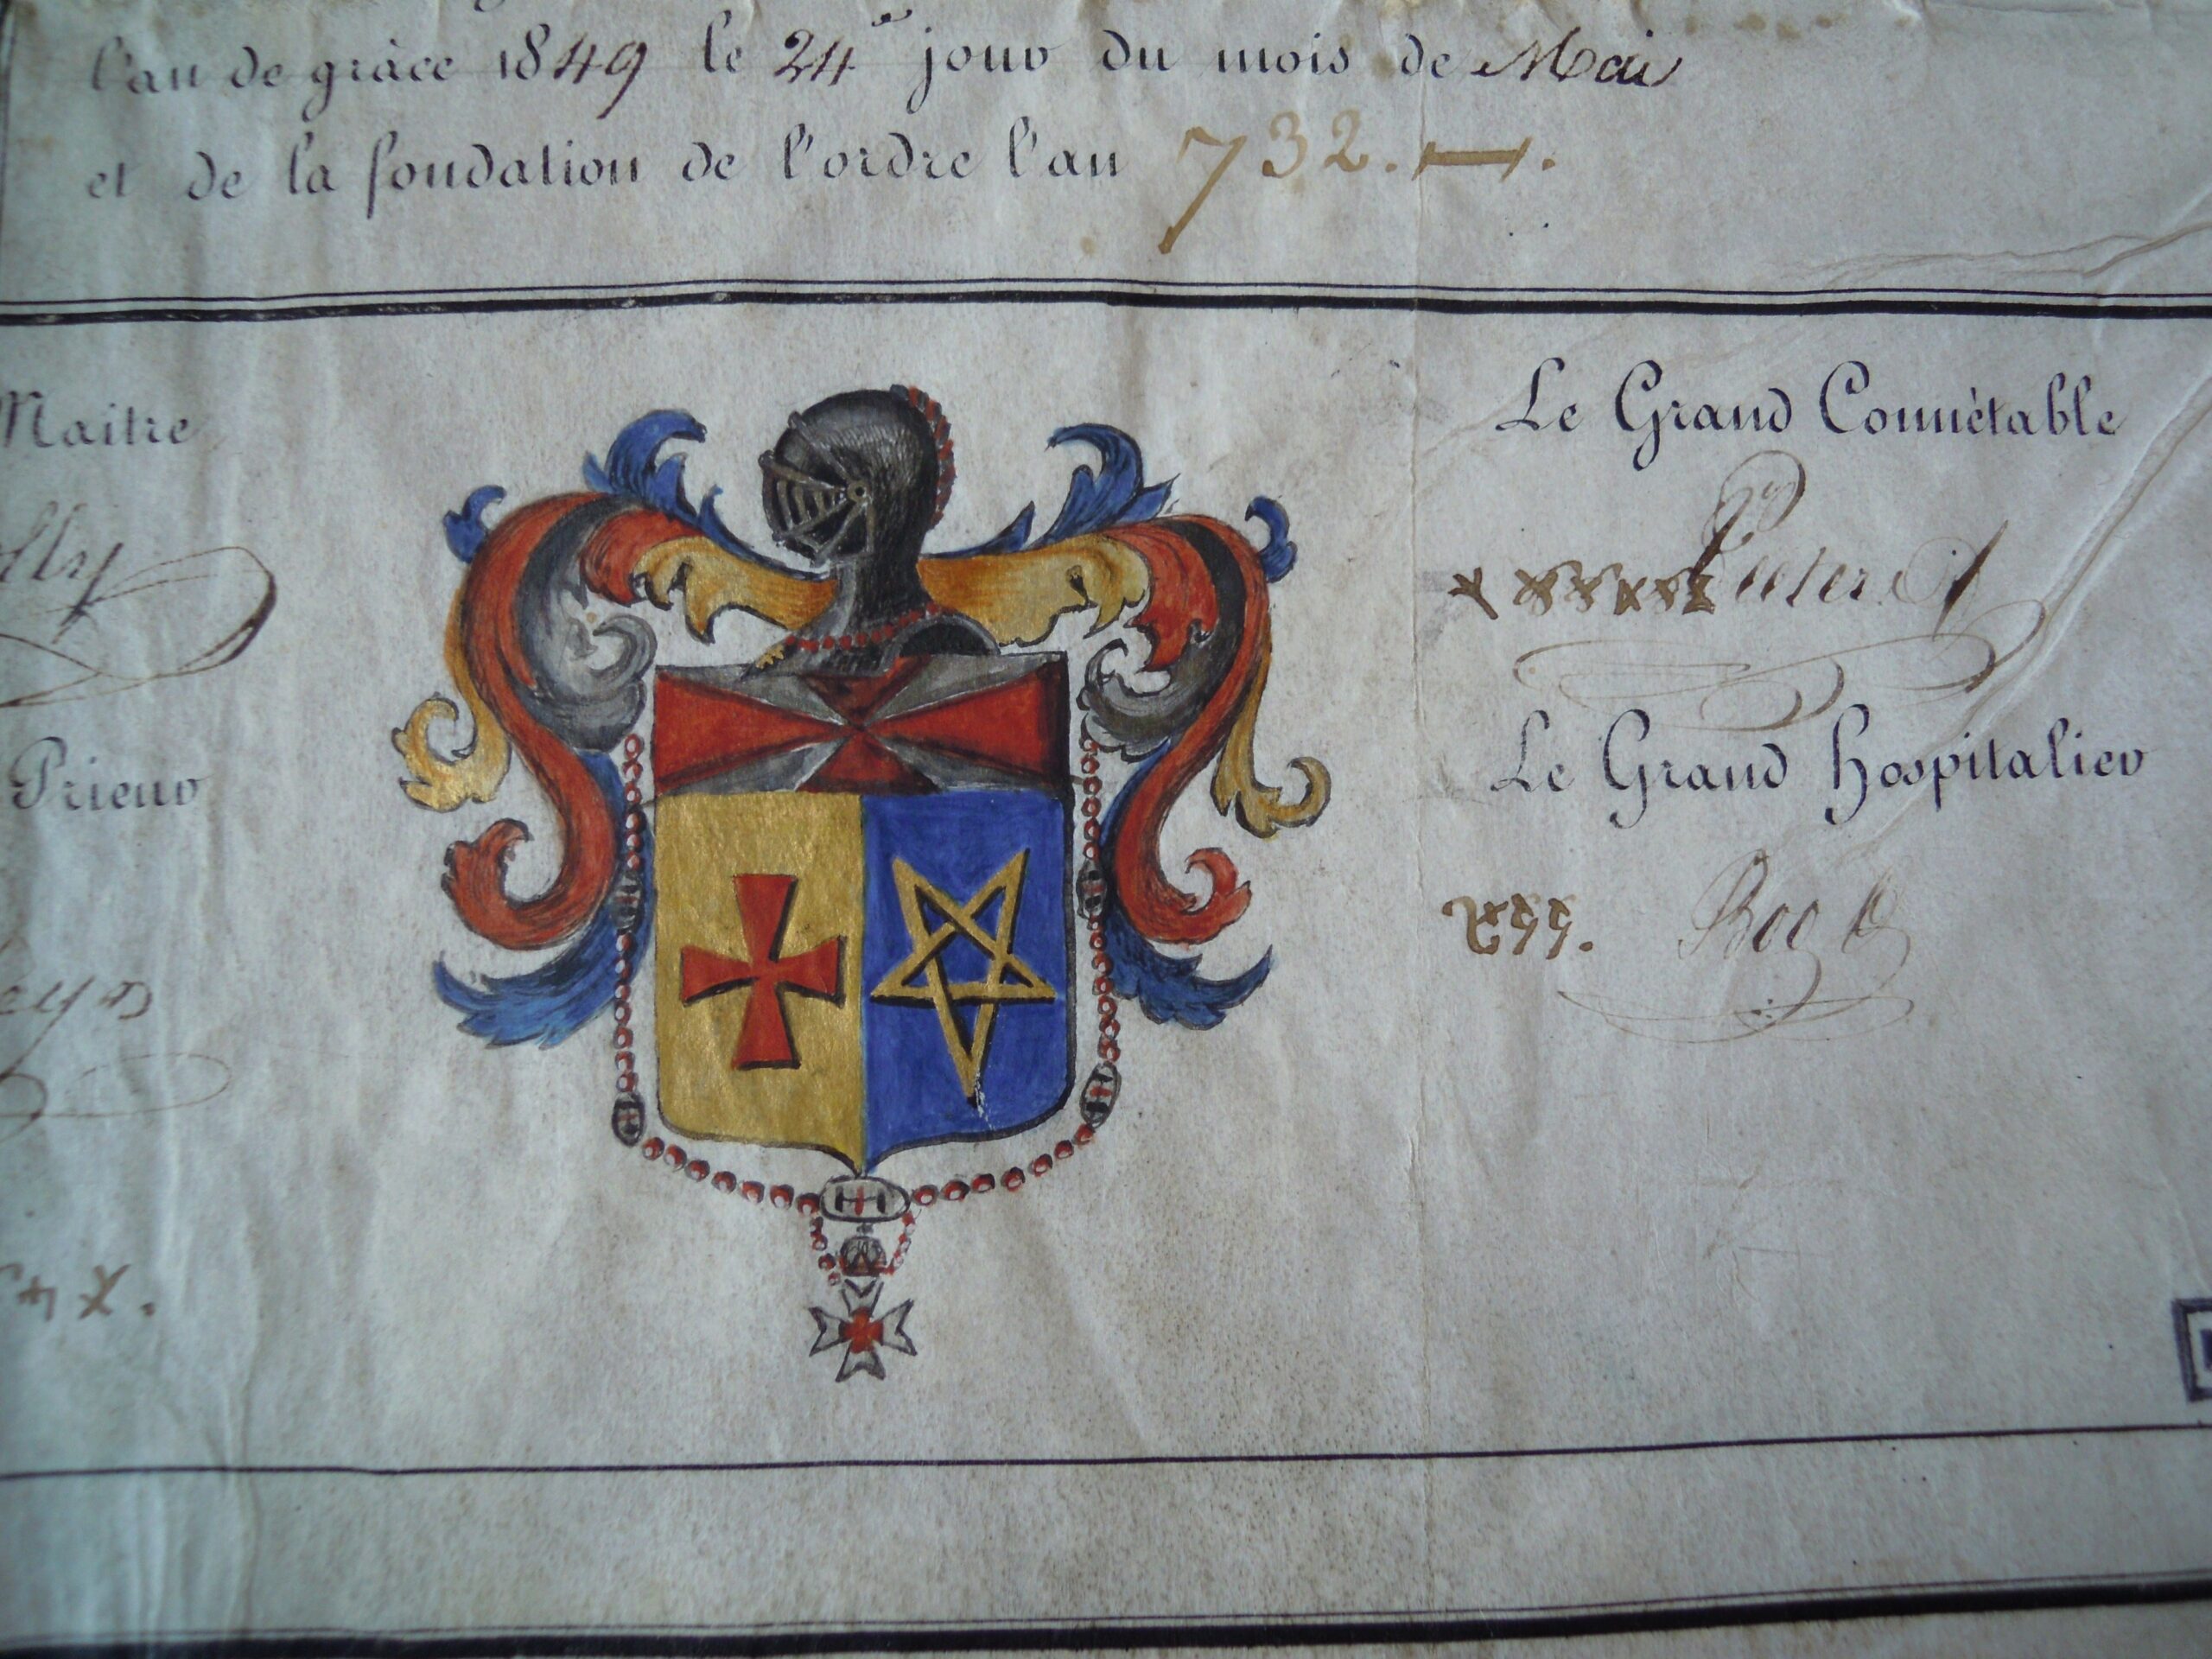 l'an de grâce 1849 le 24 jour du mois de Mai
et de la fondation de l'ordre l'an 732.
Maitre
Le Grand Connètable
Prieur
Le Grand Hospitalier